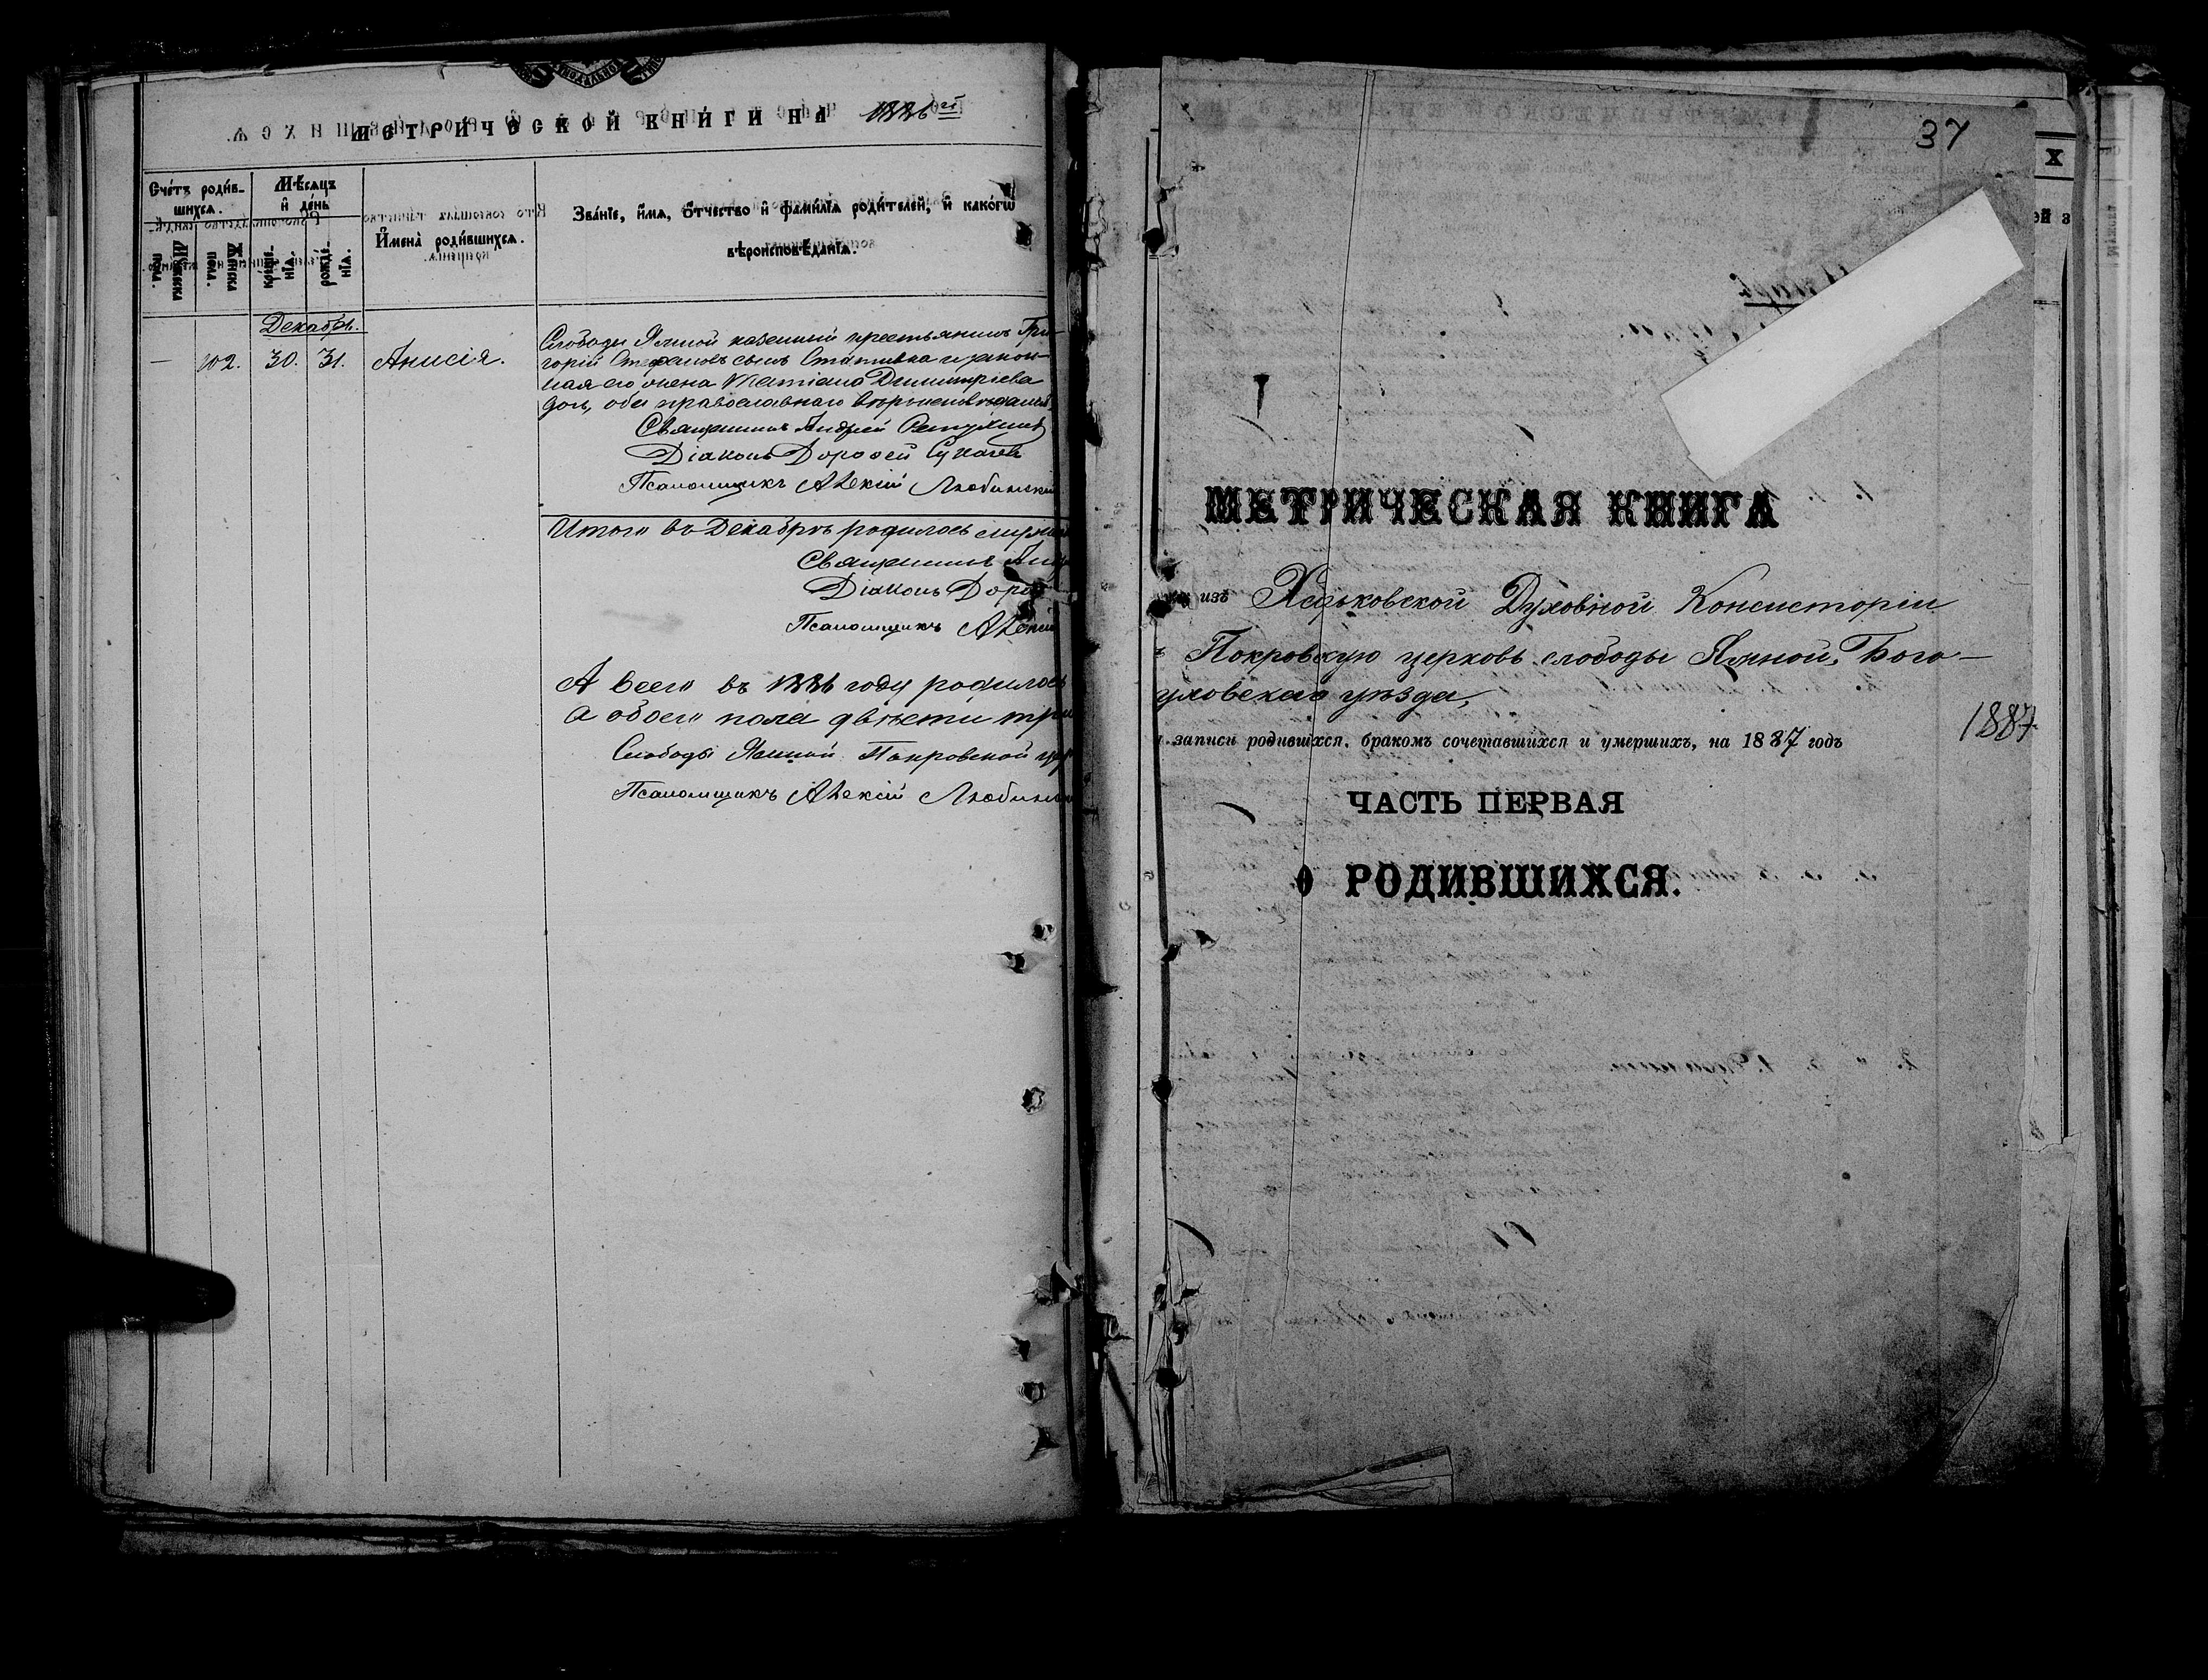 МЕТРИЧЕСКОЙ КНИГИ НА 1886 й
Счетъ родив-
шихся.
Мѣсяцъ
и день
Имена родившихся.
Званіе, имя, отчество и фамилія родителей, и какого
вѣроисповѣданія.
Мужеска
пола.
Женска
пола.
рожде-
нія.
креще-
нія.
Декабрь.
— 102. 30. 31. Анисія.
Слободы Ямной казенный крестьянинъ Гри-
горій Стефановъ сынъ Стативка и закон-
ная его жена Татіана Димитріева
дочь, оба православнаго вѣроисповѣданія
Священникъ Андрей
Діаконъ Дороѳей Сукачевъ
Псаломщикъ Алексій Любинскій
Итого въ Декабрѣ родилось мужес
Священникъ Анд
Діаконъ Доро
Псаломщикъ Алексій
А всего въ 1886 году родилось
а обоего пола двѣсти три
Слободы Ямной Покровской цер
Псаломщикъ Алексій Любинск
37
МЕТРИЧЕСКАЯ КНИГА
изъ Харьковской Духовной Консисторіи
Покровскую церковь слободы Ямной, Бого-
духовскаго уѣзда,
записи родившихся, бракомъ сочетавшихся и умершихъ, на 1887 годъ
1887
ЧАСТЬ ПЕРВАЯ
О РОДИВШИХСЯ.